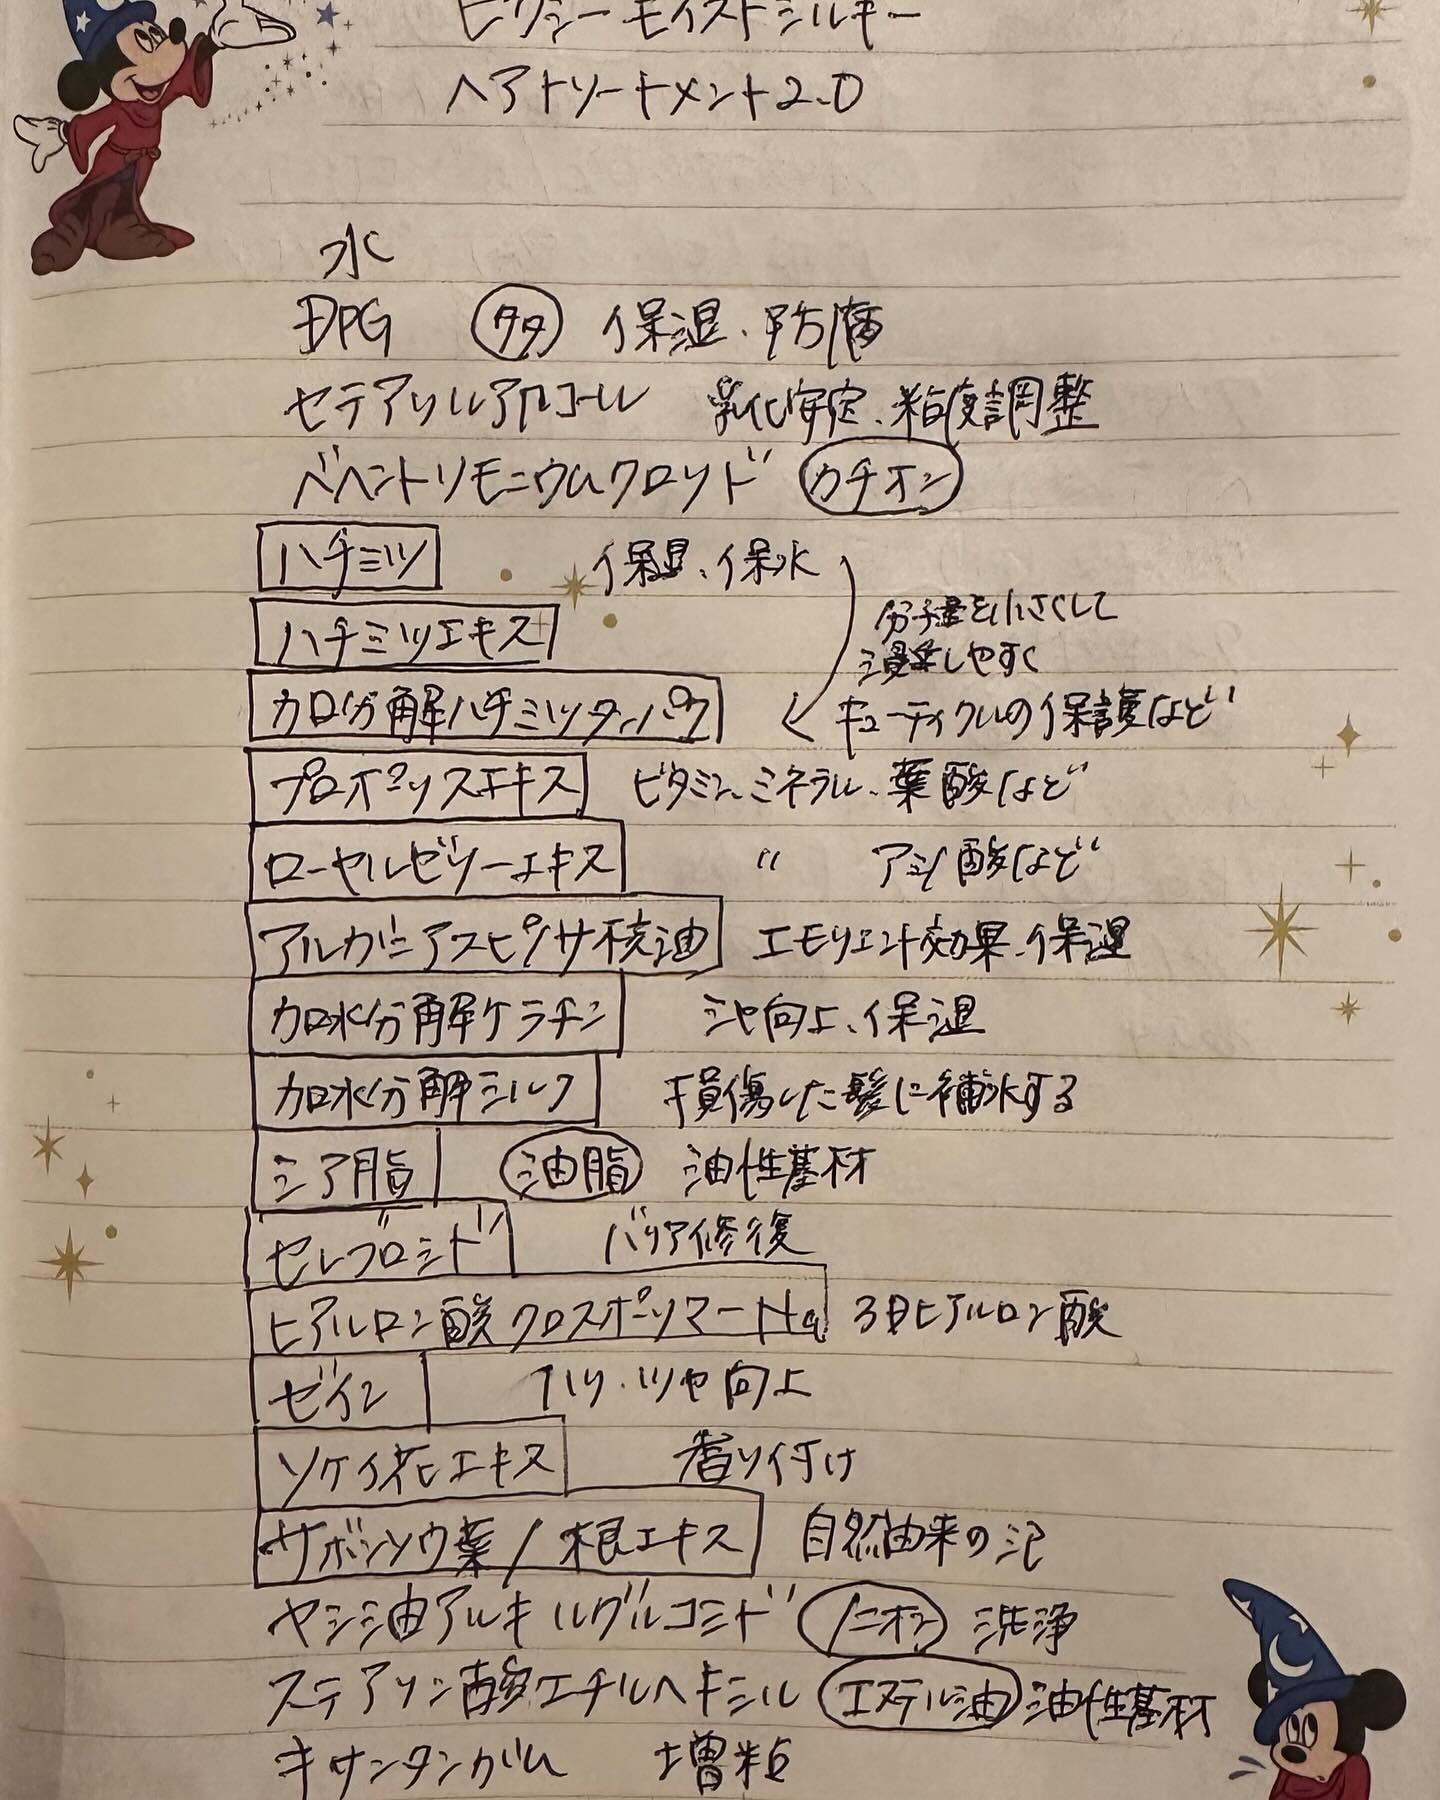 ピクシー モイストシルキー
ヘアトリートメント2.0
水
DPG 多 保湿、防腐
セテアリルアルコール 乳化安定、粘度調整
ベヘントリモニウムクロリド カチオン
ハチミツ 保湿、保水
ハチミツエキス 分子量を小さくして
浸透しやすく
加水分解ハチミツタンパク キューティクルの保護など
プロポリスエキス ビタミン、ミネラル、葉酸など
ローヤルゼリーエキス 〃 アミノ酸など
アルガニアスピノサ核油 エモリエント効果、保湿
加水分解ケラチン ツヤ向上、保湿
加水分解シルク 損傷した髪に補水する
シア脂 油脂 油性基材
セレブロシド バリア修復
ヒアルロン酸クロスポリマーNa 3Dヒアルロン酸
ゼイン ハリ・ツヤ向上
ソケイ花エキス 香り付け
サボンソウ葉/根エキス 自然由来の泡
ヤシ油アルキルグルコシド ノニオン 洗浄
ステアリン酸エチルヘキシル エステル油 油性基材
キサンタンガム 増粘